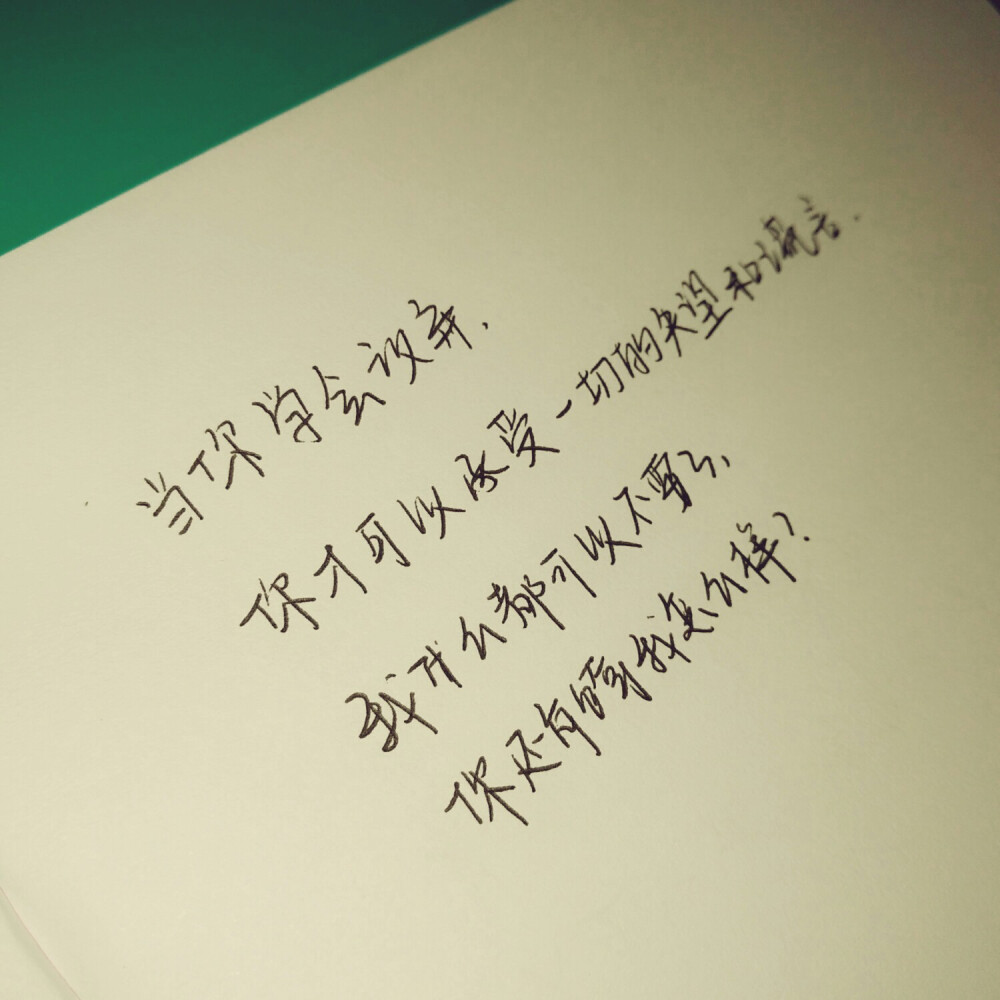 当你学会放弃,
你才可以承受一切的失望和谎言.
我什么都可以不要了,
你还有管我怎么样?